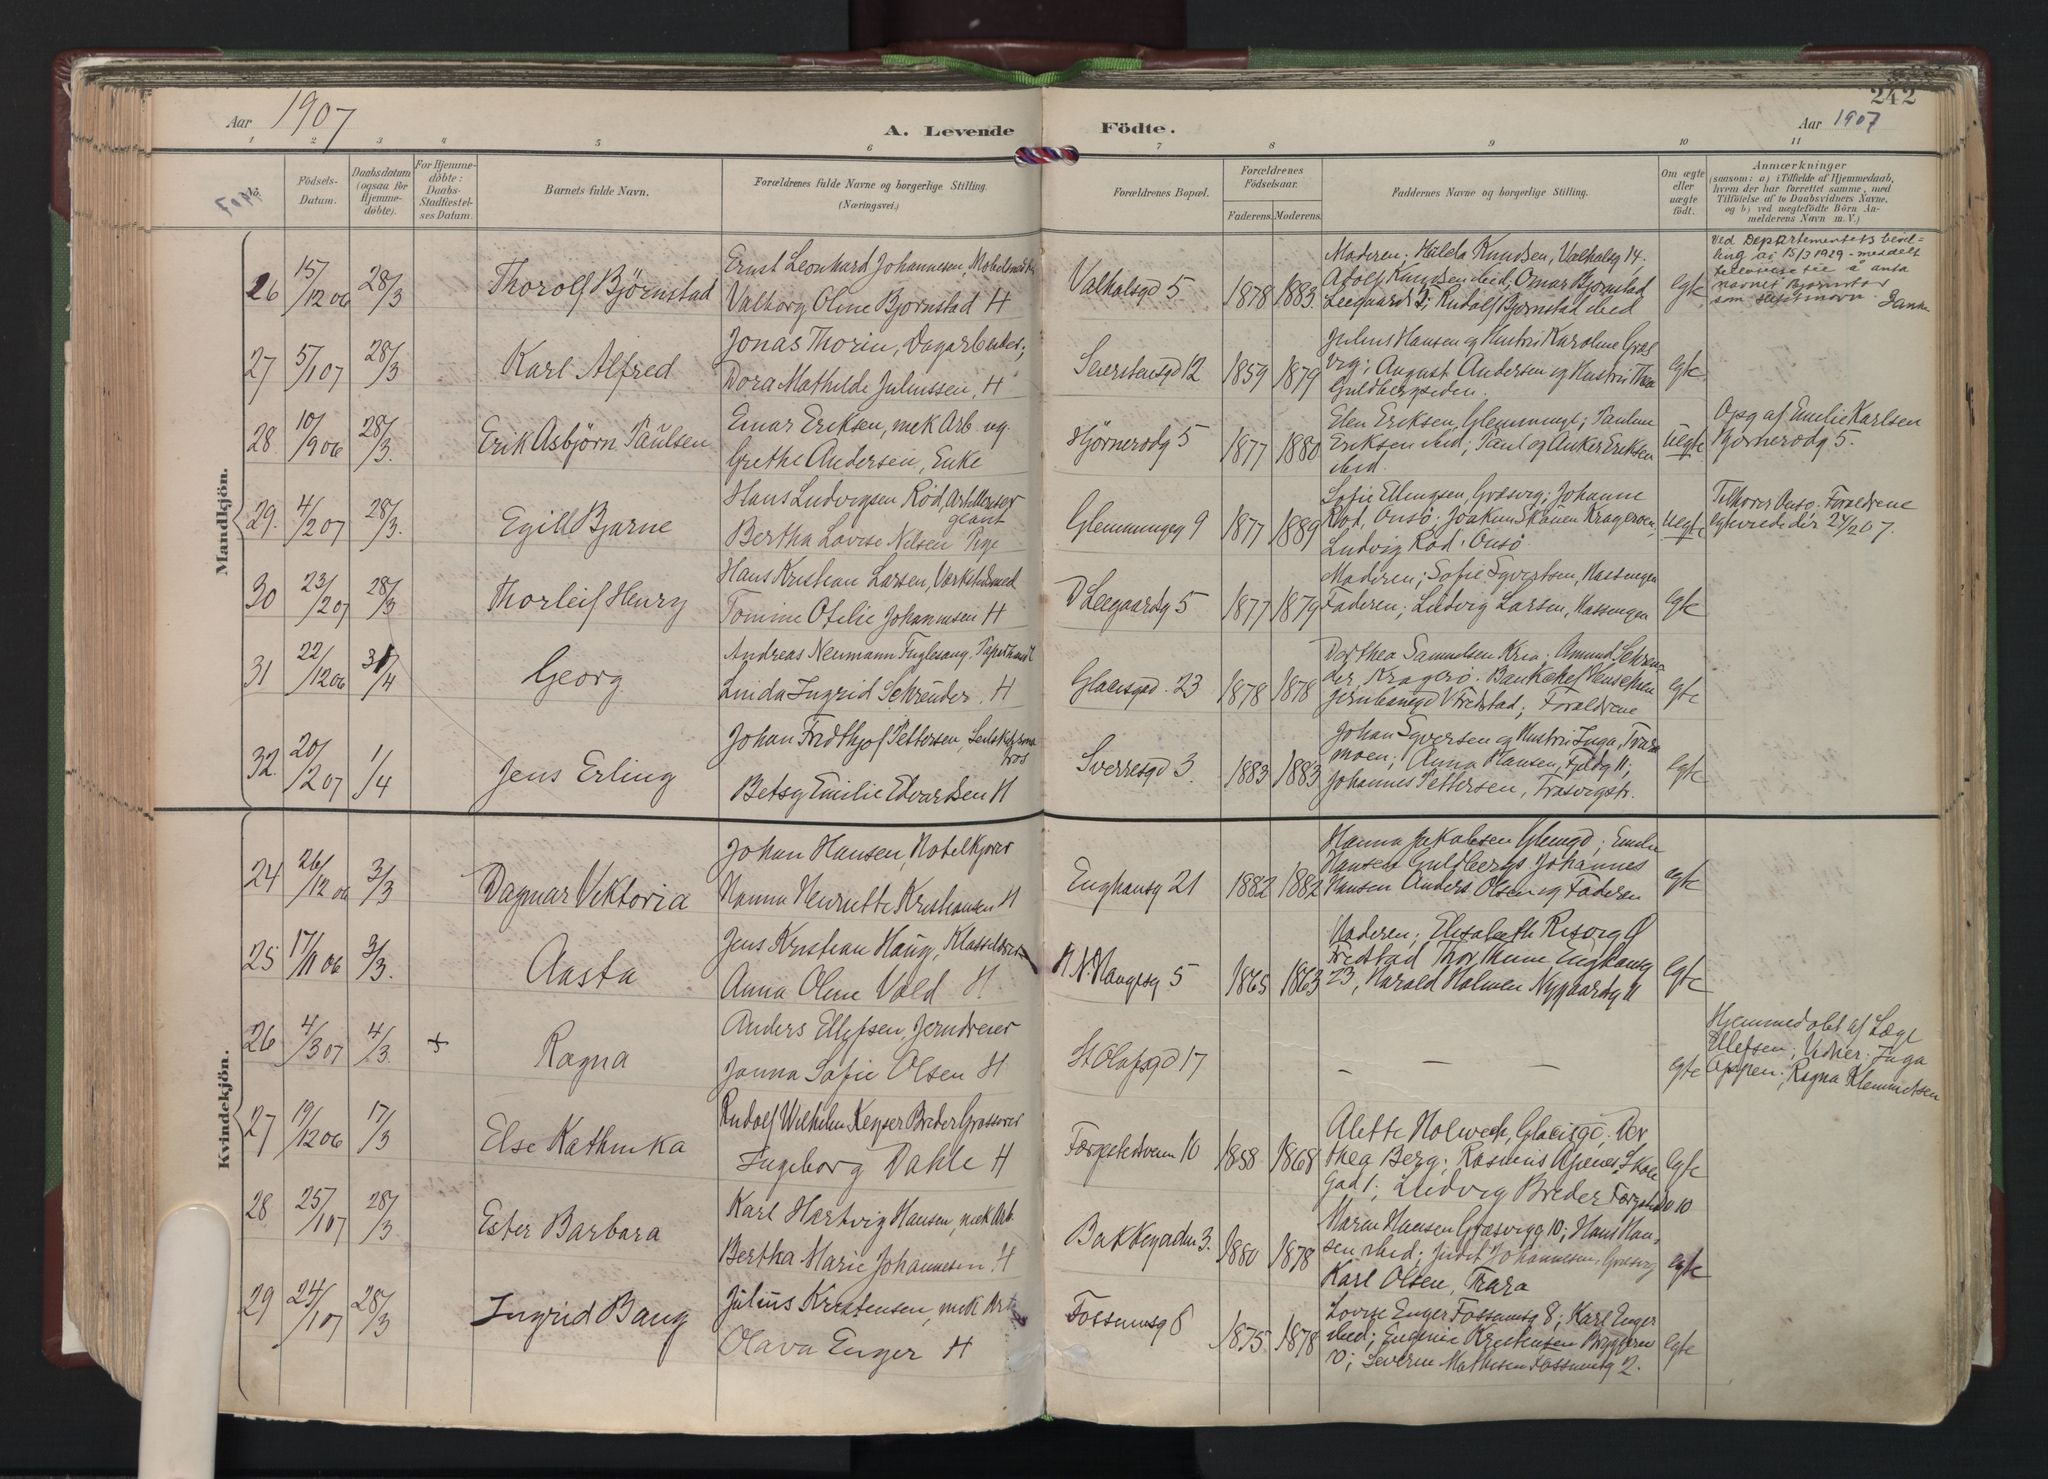 242
Aar 1907
A. Levende Födte.
Aar 1907
1 2 3 4 5 6 7 8 9 10 11
Födsels-Datum.
Daabsdatum (ogsaa for Hjemmedöbte).
For Hjemmedöbte: Daabs-Stadfæstelses Datum.
Barnets fulde Navn.
Forældrenes fulde Navne og borgerlige Stilling.
(Næringsvei.)
Forældrenes Bopæl.
Forældrenes Födselsaar.
Faderens. Moderens.
Faddernes Navne og borgerlige Stilling.
Om ægte eller uægte födt.
Anmærkninger
(saasom: a) i Tilfælde af Hjemmedaab,
hvem der har forrettet samme, med
Tilföielse af to Daabsvidners Navne,
og b) ved uægtefödte Börn An-
melderens Navn m. V.)
Mandkjön.
26 15/12 06 28/3 Thorolf Bjørnstad
Ernst Leonhard Johannesen,
Valborg Oline Bjornstad H
Valhalsgd 5 1878 1883
Moderen; Hilda Knudsen, Valhalsg 14.
Adolf Knudsen ibid, Omar Bjornstad
Leegaards 2; Rudolf Bjornstad ibid
egte
Ved Departementets bevil-
ling av 15/7 1929 - meddelt
tilladelse til å anta
navnet Bjørnstad
som slektsnavn.
27 5/1 07 28/3 Karl Alfred
Jonas Thorin, Dagarbeider;
Dora Mathilde Juliussen, H
Seierstensgd 12 1859 1879
Julius Hansen og Hustru Karoline Græs
vig; August Andersen og Hustru Thea
egte.
28 10/9 06 28/3. Erik Asbjörn Paulsen
Einar Eriksen, mek Arb. og
Grethe Andersen, Enke
Hjørnerødg 5 1877 1880
Elen Eriksen, Glemmengt; Pauline
Eriksen ibid, Paul og Anker Eriksen
ibid.
Uegte
Opg af Emilie Karlsen
Hjørnerødg 5.
29. 4/2 07 28/3. Egill Bjarne
Hans Ludvigsen Röd, Artillerser
geant
Bertha Lovise Nilsen Pige
Glemmengeg 9 1877 1889
Sofie Ellingsen, Græsvig; Johanne
Röd, Onsö; Joakim Skåuen Krageroen,
Ludvig Röd. Onsö
Uegte
Tilhorer Onsö. Foraldrene
egteviede der 24/2 07.
30 23/2 07 28/3 Thorleif Henry
Hans Kristian Larsen, Værkstedsmed
Tomine Otilie Johannesen H
D Leegaardsg 5 1877 1879
Moderen; Sofie Syvertsen, Hassengen
Faderen; Ludvig Larsen, Hassengen
egte
31 22/12 06 31/4 Georg
Andreas Neumann Fuglesang. Papirhandl
Linda Ingrid Schrøuder. H
Glacisgd. 23 1878 1878
Dorthea Samuelsen Kria. Amund Schrøu
der, Kragerö.
Jernbanegd V Fredstad; Foraldrene
egte
32. 20/12 07 1/4 Jens Erling
Johan Fridthjof Pettersen,
Betsy Emilie Edvardsen H
Sverresgd 3. 1883 1883
Johan Syversen og Hustru Inga, Trara
moen; Anna Hansen, Fjeldg 11;
Johannes Pettersen, Trosvigstr.
egte
Kvindekjön.
24 26/12 06 3/3 Dagmar Viktoria
Johan Hansen, Hotelkjører
Hanna Henriette Kristiansen H
Enghausg 21 1882 1882
Hanna Jakobsen Glemgd; Emilie
Hansen Guldbergs. Johannes
Hansen Anders Olsen og Faderen
egte
25 17/11 06 3/3. Aasta
Jens Kristian Haug, Klasselærer
Anna Oline Vold H
H. N. Haugesg 5 1865 1863
Moderen; Elisabeth Risvig Ø
Fredstad Thor Thune Enghausg
23, Harald Holmen Nygaardsg 11
egte
26 4/3 07 4/3. + Ragna
Anders Ellefsen, Jerndreier
Janna Sofie Olsen H
St Olafsgd 17 — — —
egte
Hjemmedöbt af Læge
Ellefsen; Vidner: Inga
Appen; Ragna Klemmetsen
27 19/12 06 17/3 Else Kathinka
Rudolf Wilhelm Keyser Breder Grosserer
Ingeborg Dahle H
Færgestedsveien 10 1858 1868
Alette Holweck, Glacisgd. Dor,
thea Berg; Rasmus Apenes Skole
Gad 1; Ludvig Breder Færgested 10
egte
28 25/1 07 28/3 Ester Barbara
Karl Hartvig Hansen, mek Arb.
Bertha Marie Johannesen H
Bakkegaden 3. 1880 1878
Maren Hansen Græsvigg 10; Hans Han-
sen ibid; Judit Johannesen, Græsvig
Karl Olsen, Trara
egte
29 24/1 07 28/3 Ingrid Bang
Julius Kristensen, mek Arb
Olava Enger H
Fossumsg 8 1875 1878
Lovise Enger Fossumsg 8; Karl Enger
ibid; Eugenie Kristensen Bryggerie
Severin Mathisen Fossumsg 2.
egte